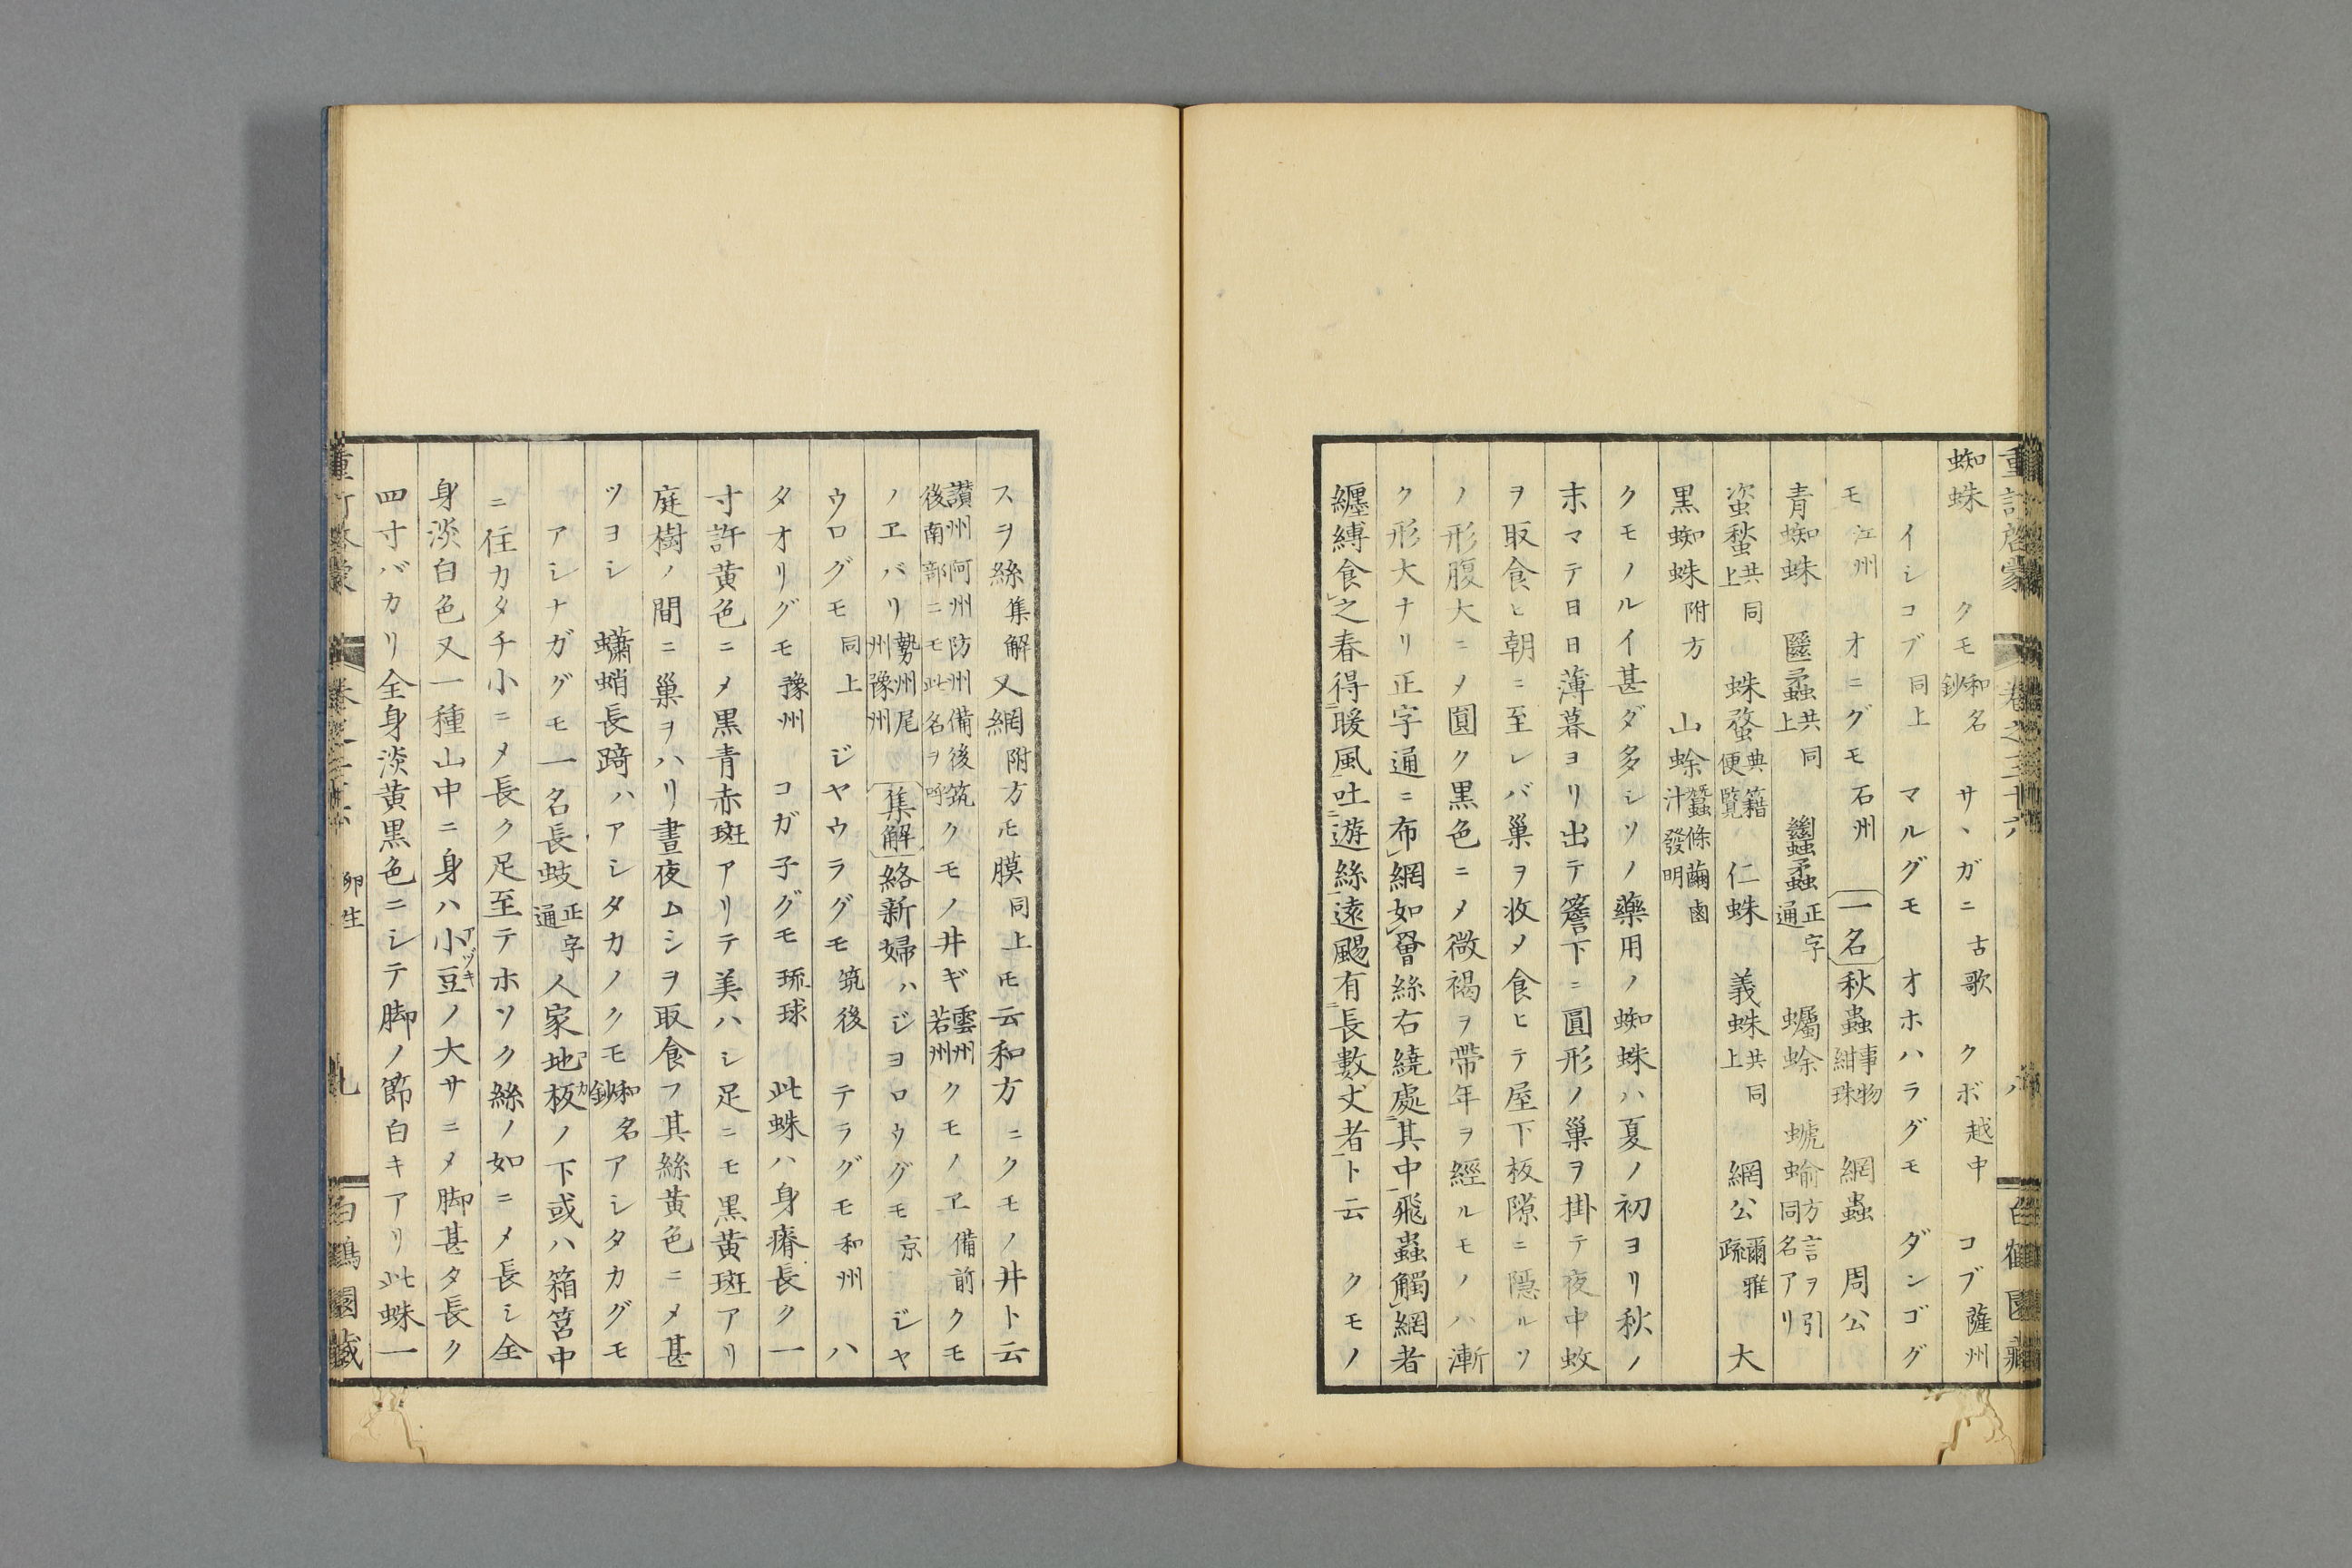 重訂啓蒙 卷之三十六 八 白鶴園藏
蜘蛛 クモ 和名鈔 サヽガニ 古歌 クボ 越中 コブ 薩州
イシコブ 同上 マルグモ オホハラグモ ダンゴグ
モ 江州 オニグモ 石州 一名 秋蟲 事物紺珠 網蟲 周公
青蜘蛛 䘐蟊 共同上 蠿蟊 正字通 蠾蜍 蝋蝓 方言ヲ引同名アリ
蚉蝵 共同上 蛛蝥 典籍便覽 仁蛛 義蛛 共同上 網公 彌雅疏 大
黒蜘蛛 附方 山蜍 蠶條繭鹵汁發明
クモノルイ甚ダ多シソノ藥用ノ蜘蛛ハ夏ノ初ヨリ秋ノ
末マテ日日薄暮ヨリ出テ簷下ニ圓形ノ巢ヲ掛テ夜中蚊
ヲ取食ヒ朝ニ至レバ巢ヲ收メ食ヒテ屋下板隙ニ隱ルソ
ノ形腹大ニメ圓ク黒色ニメ微褐ヲ帶年ヲ經ルモノハ漸
ク形大ナリ正字通ニ布網如罾絲右繞處其中飛蟲觸網者
纒縛食之春得暖風吐遊絲遠颺有長數丈者ト云 クモノ
スヲ絲 集解 又網 附方 モ膜 同上 モ云和方ニクモノ井ト云
讃州阿州防州備後筑後南部ニモ此名ヲ呼 クモノ井ギ 雲州若州 クモノヱ 備前 クモ
ノヱバリ 勢州尾州豫州 集解 絡新婦ハジヨロウグモ 京 ジヤ
ウログモ 同上 ジヤウラグモ 筑後 テラグモ 和州 ハ
タオリグモ 豫州 コガ子グモ 琉球 此蛛ハ身瘠長ク一
寸許黄色ニメ黒青赤斑アリテ美ハシ足ニモ黒黄斑アリ
庭樹ノ間ニ巢ヲハリ晝夜ムシヲ取食フ其絲黄色ニメ甚
ツヨシ 蠨蛸長踦ハアシタカノクモ 和名鈔 アシタカグモ
アシナガグモ一名長蚑 正字通 人家地板ノ下或ハ箱筥中
ニ住カタチ小ニメ長ク足至テホソク絲ノ如ニメ長シ全
身淡白色又一種山中ニ身ハ小豆アヅキノ大サニメ脚甚タ長ク
四寸バカリ全身淡黄黒色ニシテ脚ノ節白キアリ此蛛一
卵生 九